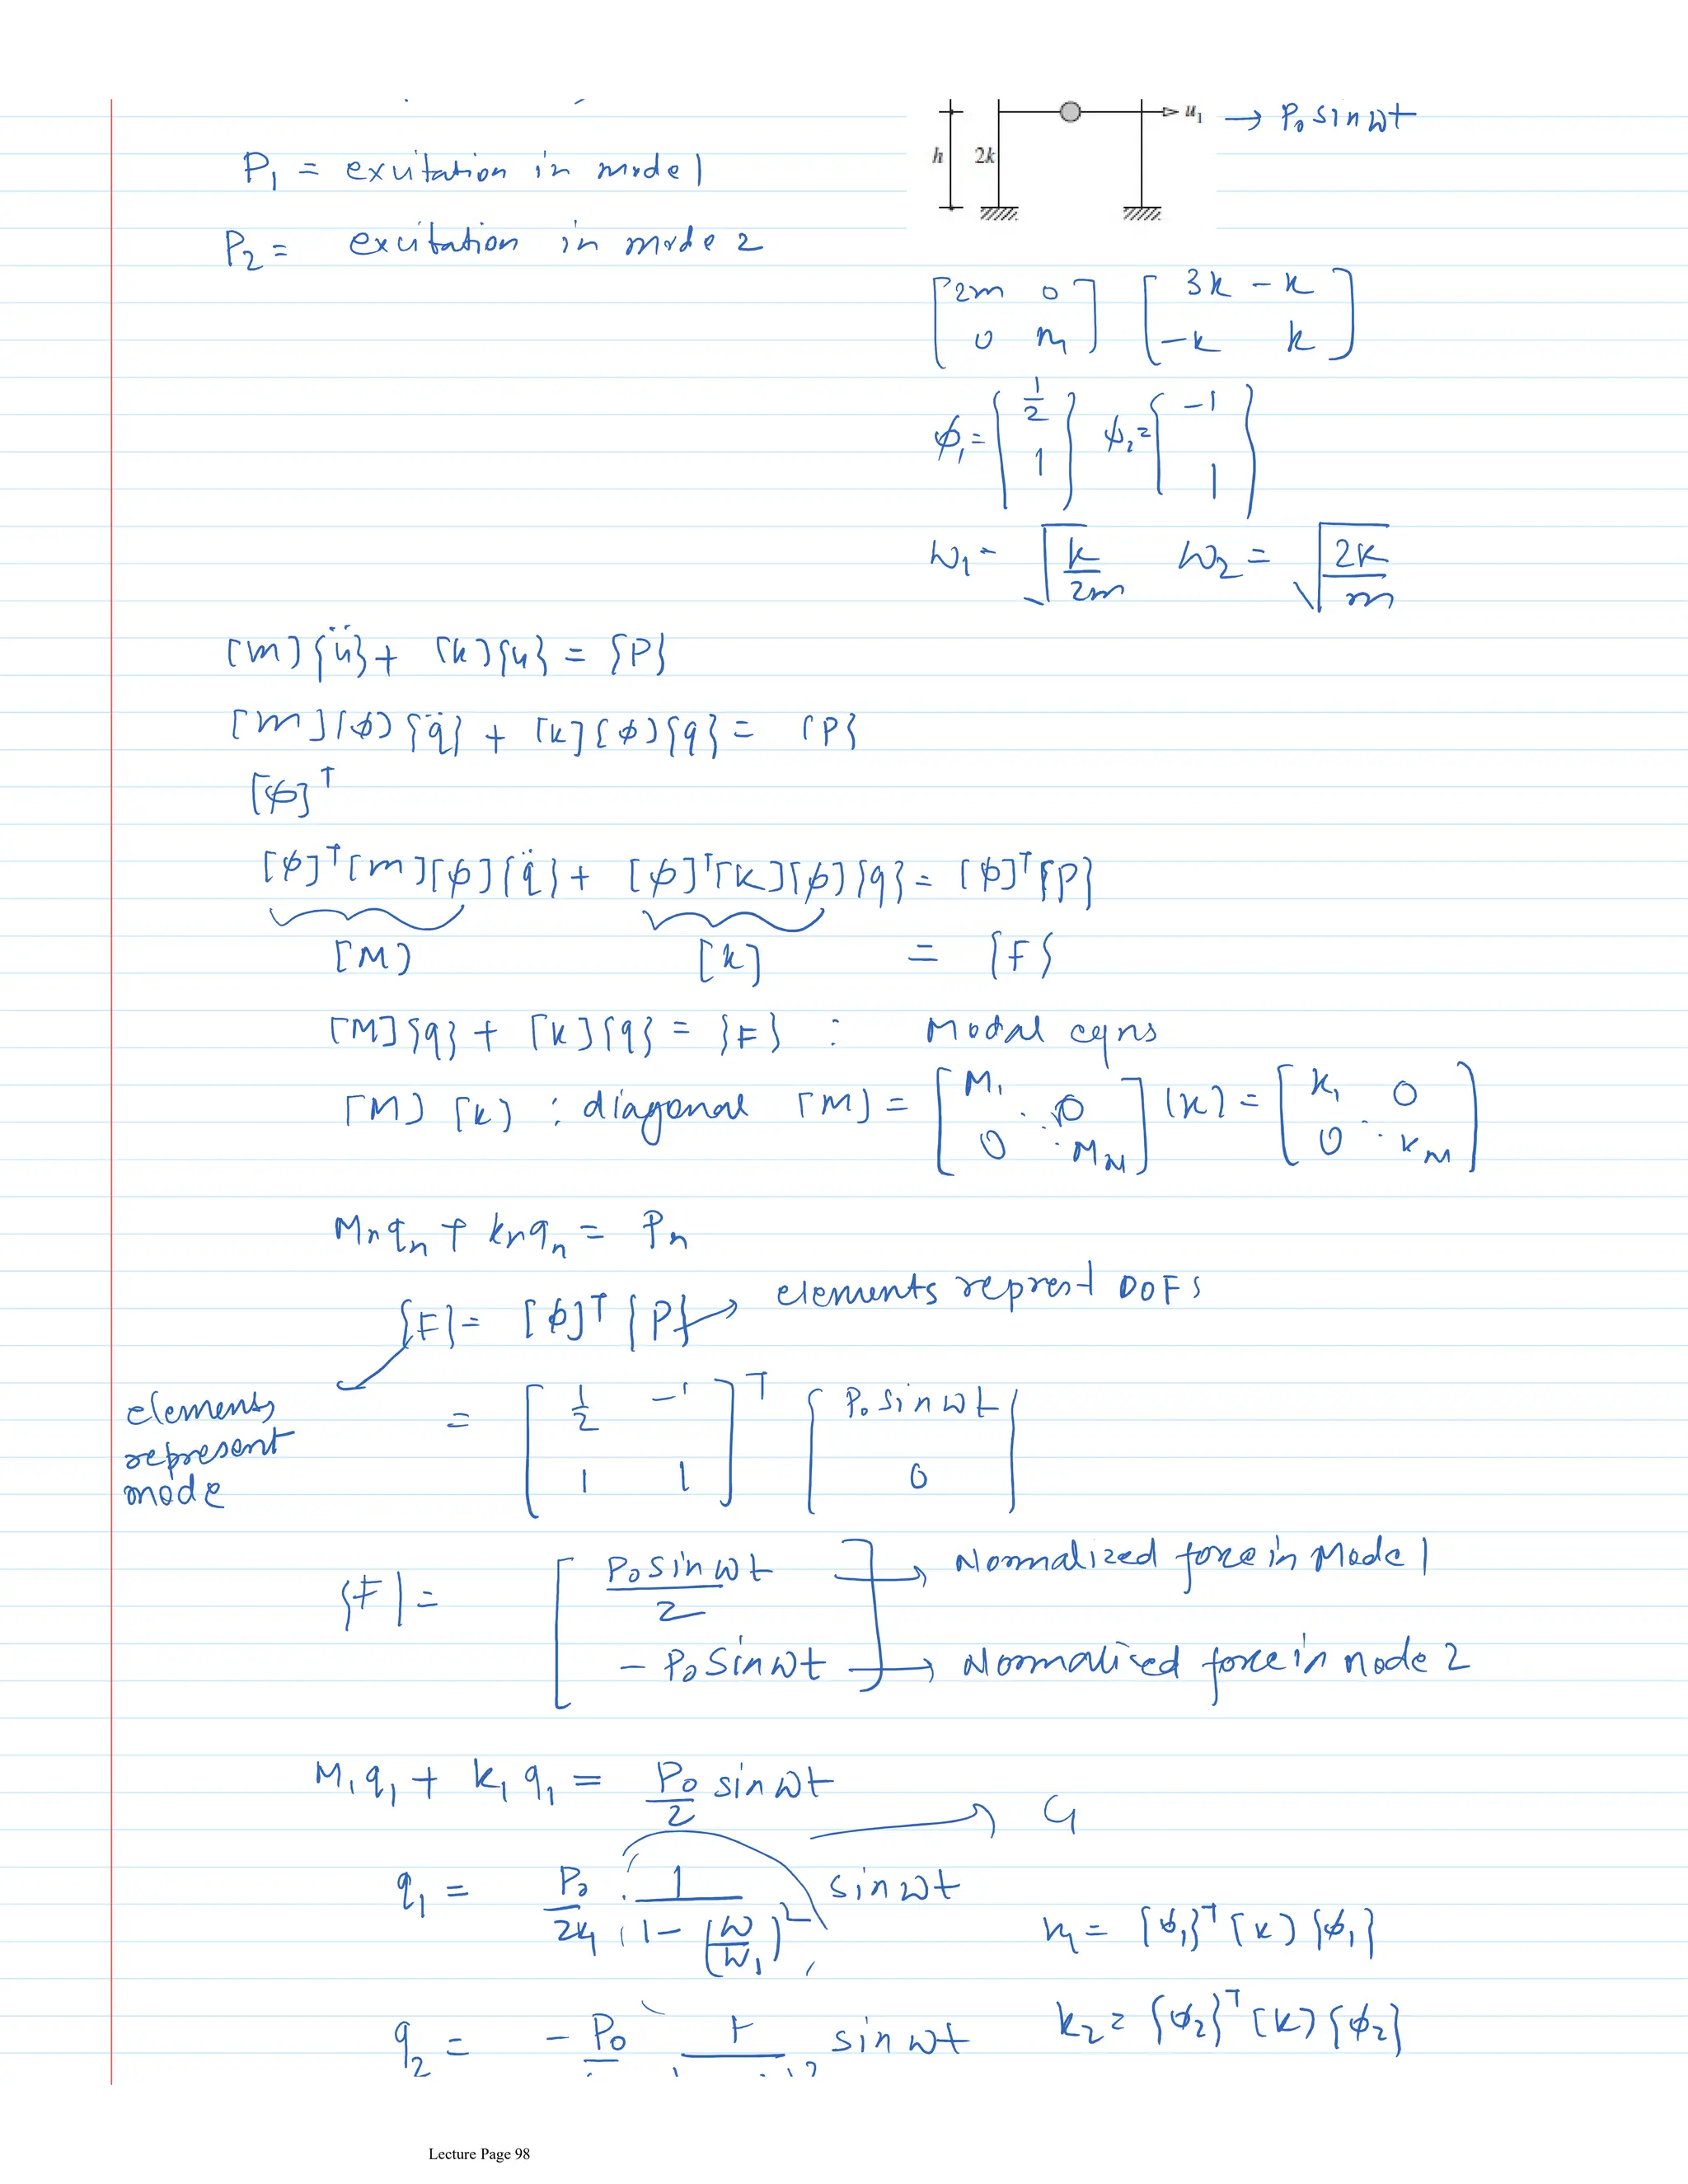 u₁ → P₀ sin ωt
h 2k
P₁ = exuitation in mode 1
P₂ = excitation in mode 2
[2m 0; 0 m] [3k -k; -k k]
ϕ₁ = {1/2; 1} ϕ₂ = {-1; 1}
ω₁ = √(k/2m) ω₂ = √(2k/m)
[m]{ü} + [k]{u} = {P}
[m][ϕ]{q̈} + [k][ϕ]{q} = {P}
[ϕ]ᵀ
[ϕ]ᵀ[m][ϕ]{q̈} + [ϕ]ᵀ[k][ϕ]{q} = [ϕ]ᵀ{P}
[M] [k] = {F}
[M]{q} + [k]{q} = {F} : Modal eqns
[M] [k] : diagonal [M] = [M₁ 0; 0 M_N] [k] = [k₁ 0; 0 k_M]
Mₙqₙ + kₙqₙ = Pₙ
{F} = [ϕ]ᵀ{P} → elements represt DOFs
elements
represent
mode
= [1/2 -1; 1 1]ᵀ {P₀ sin ωt; 0}
{F} = [P₀ sin ωt / 2 → Normalized force in Mode 1
- P₀ sin ωt] → Normalised force in node 2
M₁q₁ + k₁q₁ = P₀/2 sin ωt
C₁
q₁ = P₀/2k₁ · 1/(1 - (ω/ω₁)²) sin ωt
k₁ = {ϕ₁}ᵀ[k]{ϕ₁}
q₂ = - P₀ 1 sin ωt
k₂ = {ϕ₂}ᵀ[k]{ϕ₂}
Lecture Page 98